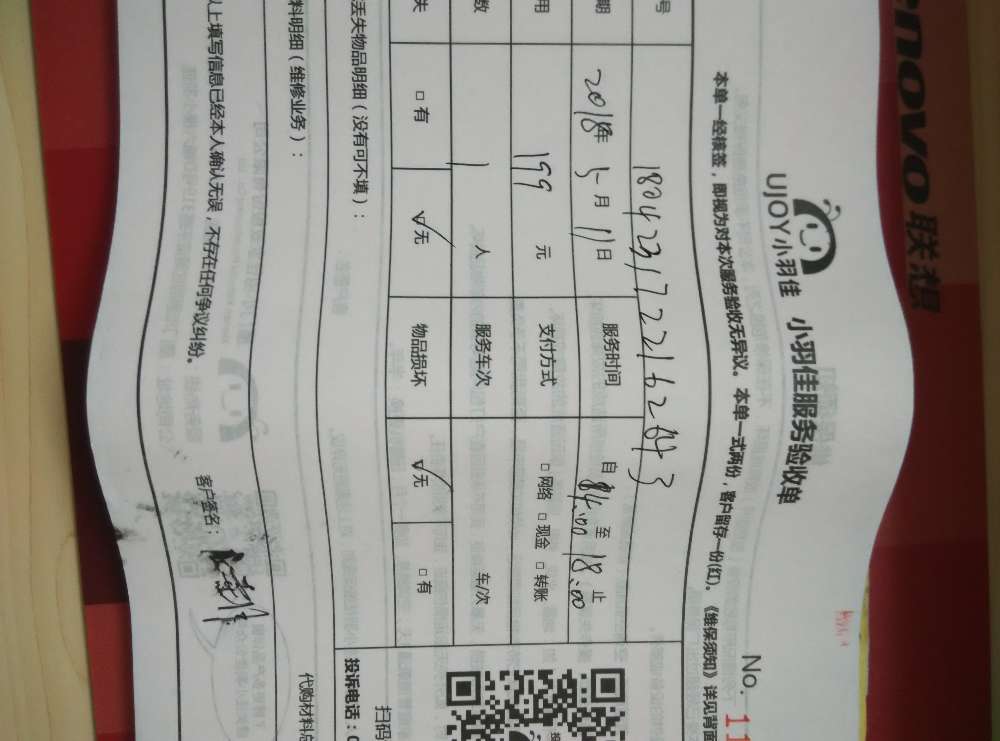 enovo联想
UJOY小羽佳 小羽佳服务验收单
No. 11
本单一经核签，即视为对本次服务验收无异议。本单一式两份，客户留存一份(红)。《维保须知》详见背面
号 180423172216
期 2018年 5月 11日 服务时间 自 14:00 至 18:00 止
用 199 元 支付方式 □网络 □现金 □转账
数 1 人 服务车次 车/次
失 □有 ☑无 物品损坏 ☑无 □有
丢失物品明细（没有可不填）：
扫码
投诉电话：0
料明细（维修业务）：
代购材料总
以上填写信息已经本人确认无误，不存在任何争议纠纷。 客户签名：